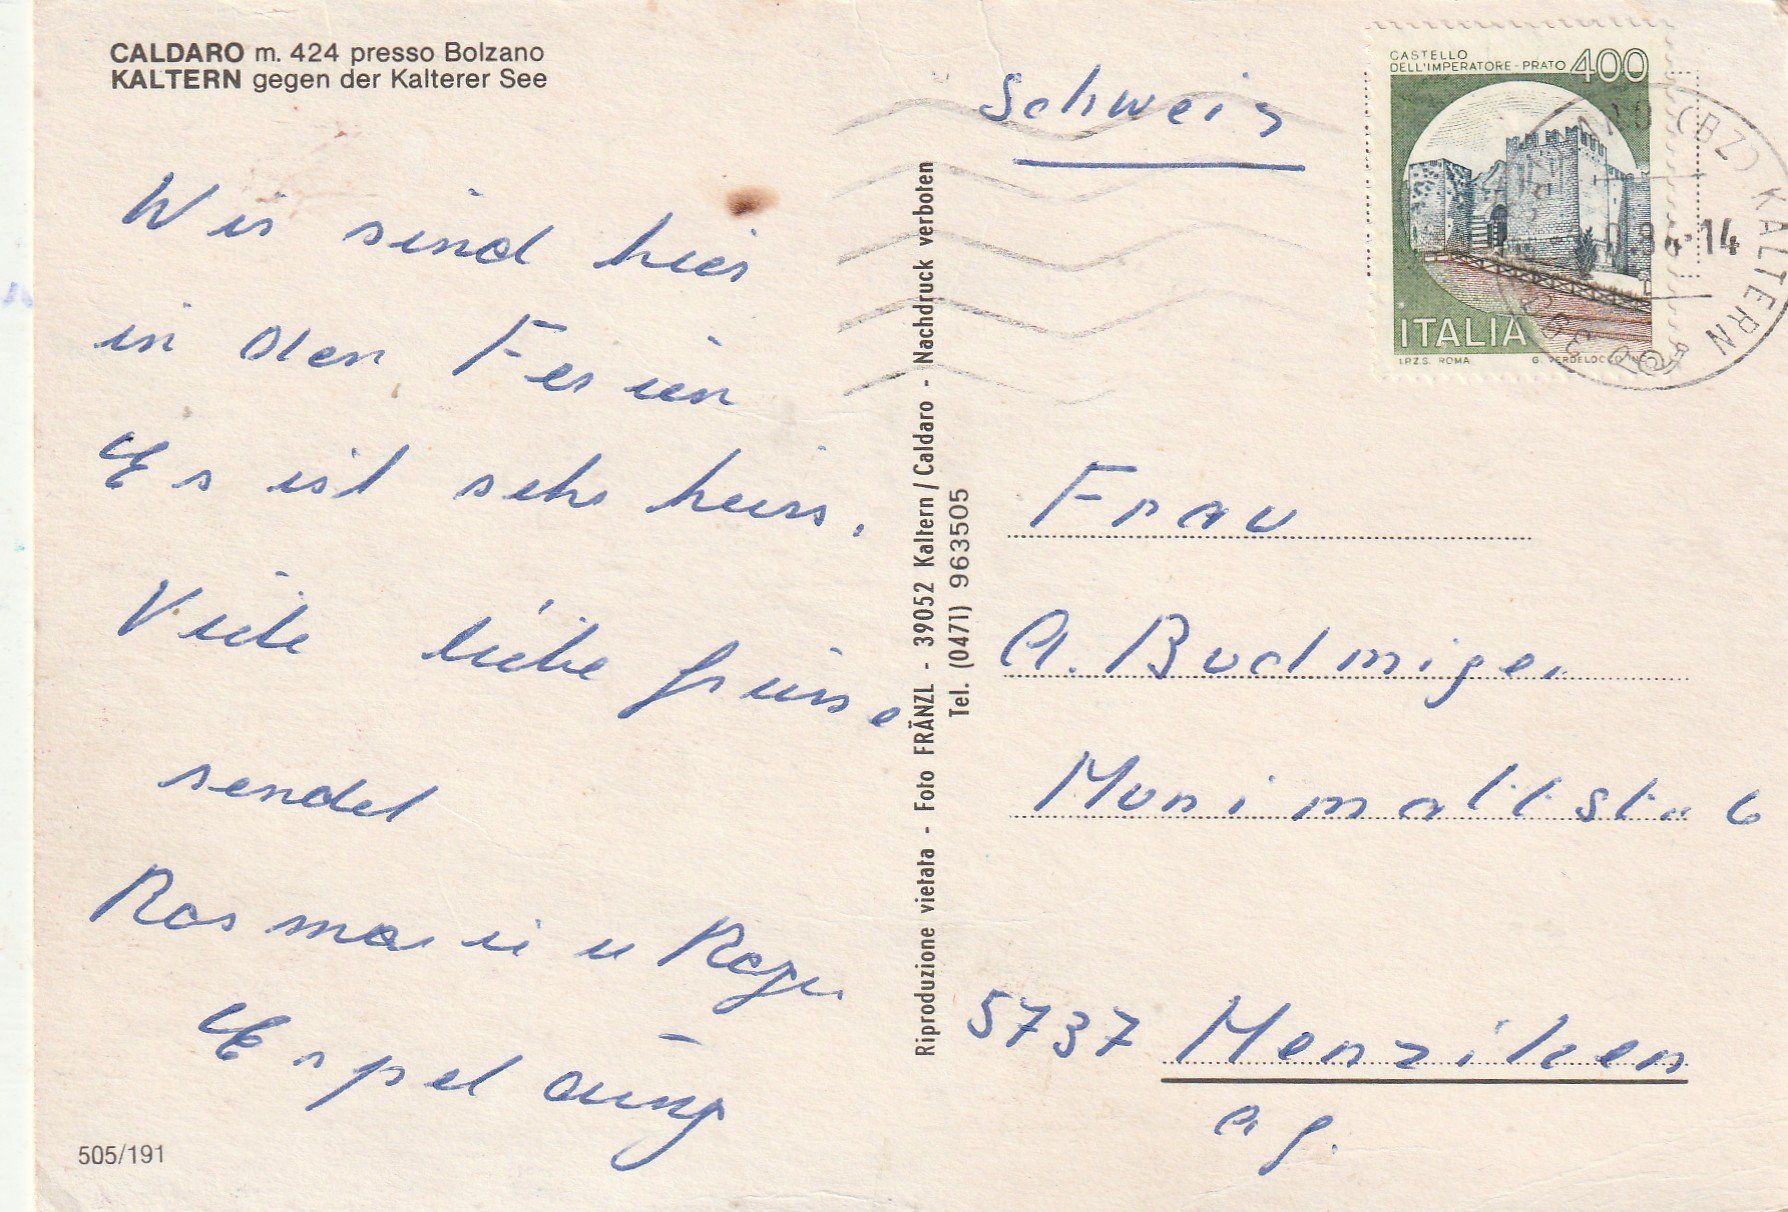 CALDARO m. 424 presso Bolzano
KALTERN gegen der Kalterer See
Wir sind hier
in den Ferien
Es ist sehr heiss.
Viele liebe grüsse
sendet
Rosmarie u Roger
505/191
Riproduzione vietata - Foto FRÄNZL - 39052 Kaltern / Caldaro - Nachdruck verboten
Tel. (0471) 963505
Schweiz
CASTELLO
DELL'IMPERATORE - PRATO 400
ITALIA
I.P.Z.S. ROMA
(BZ) KALTERN
84-14
Frau
A. Budmiger
Munimattstr. 6
5737 Menziken
ag.